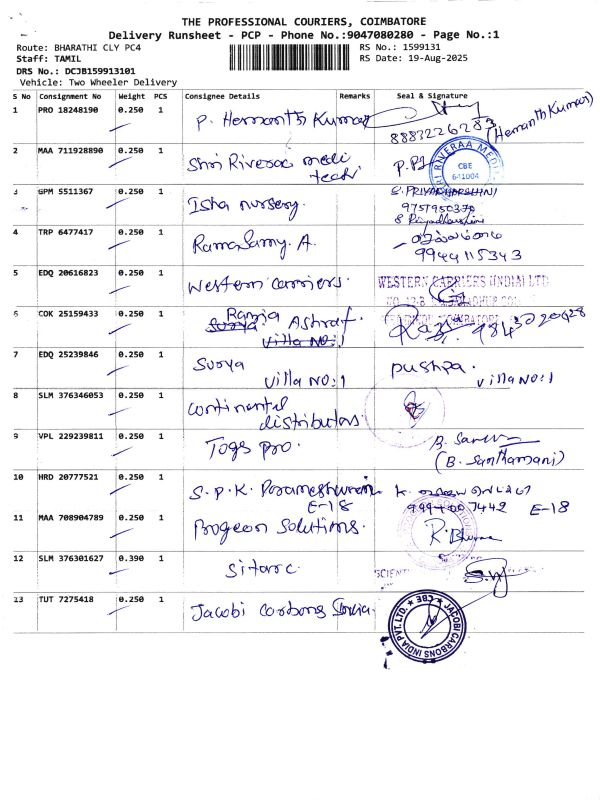 THE PROFESSIONAL COURIERS, COIMBATORE
Delivery Runsheet - PCP - Phone No.:9047080280 - Page No.:1
Route: BHARATHI CLY PC4 RS No.: 1599131
Staff: TAMIL RS Date: 19-Aug-2025
DRS No.: DCJB159913101
Vehicle: Two Wheeler Delivery
S No Consignment No Weight PCS Consignee Details Remarks Seal & Signature
1 PRO 18248190 0.250 1 P. Hemanth Kumar 8883226283 (Hemanth Kumar)
2 MAA 711928890 0.250 1 Shri Riveraa medi tech CBE 641004
3 GPM 5511367 0.250 1 Isha nursery. S. PRIYADHARSHINI
9751950370
S Priyadharshini
4 TRP 6477417 0.250 1 Ramasamy. A.
9944115343
5 EDQ 20616823 0.250 1 Western carriers. WESTERN CARRIERS (INDIA) LTD
6 COK 25159433 0.250 1 Ramja Ashraf.
Surya villa NO:1
7 EDQ 25239846 0.250 1 Surya pushpa.
villa NO:1 villa NO:1
8 SLM 376346053 0.250 1 continental
distributors.
9 VPL 229239811 0.250 1 Togs pro.
(B. Santhamani)
10 HRD 20777521 0.250 1 S. P. K. Parameshwaran
E-18 E-18
11 MAA 708904789 0.250 1 Progeon Solutions.
12 SLM 376301627 0.390 1 Sitarc. SCIENT
13 TUT 7275418 0.250 1 Jacobi carbons India.
JACOBI CARBONS INDIA PVT. LTD. ★ CBE ★